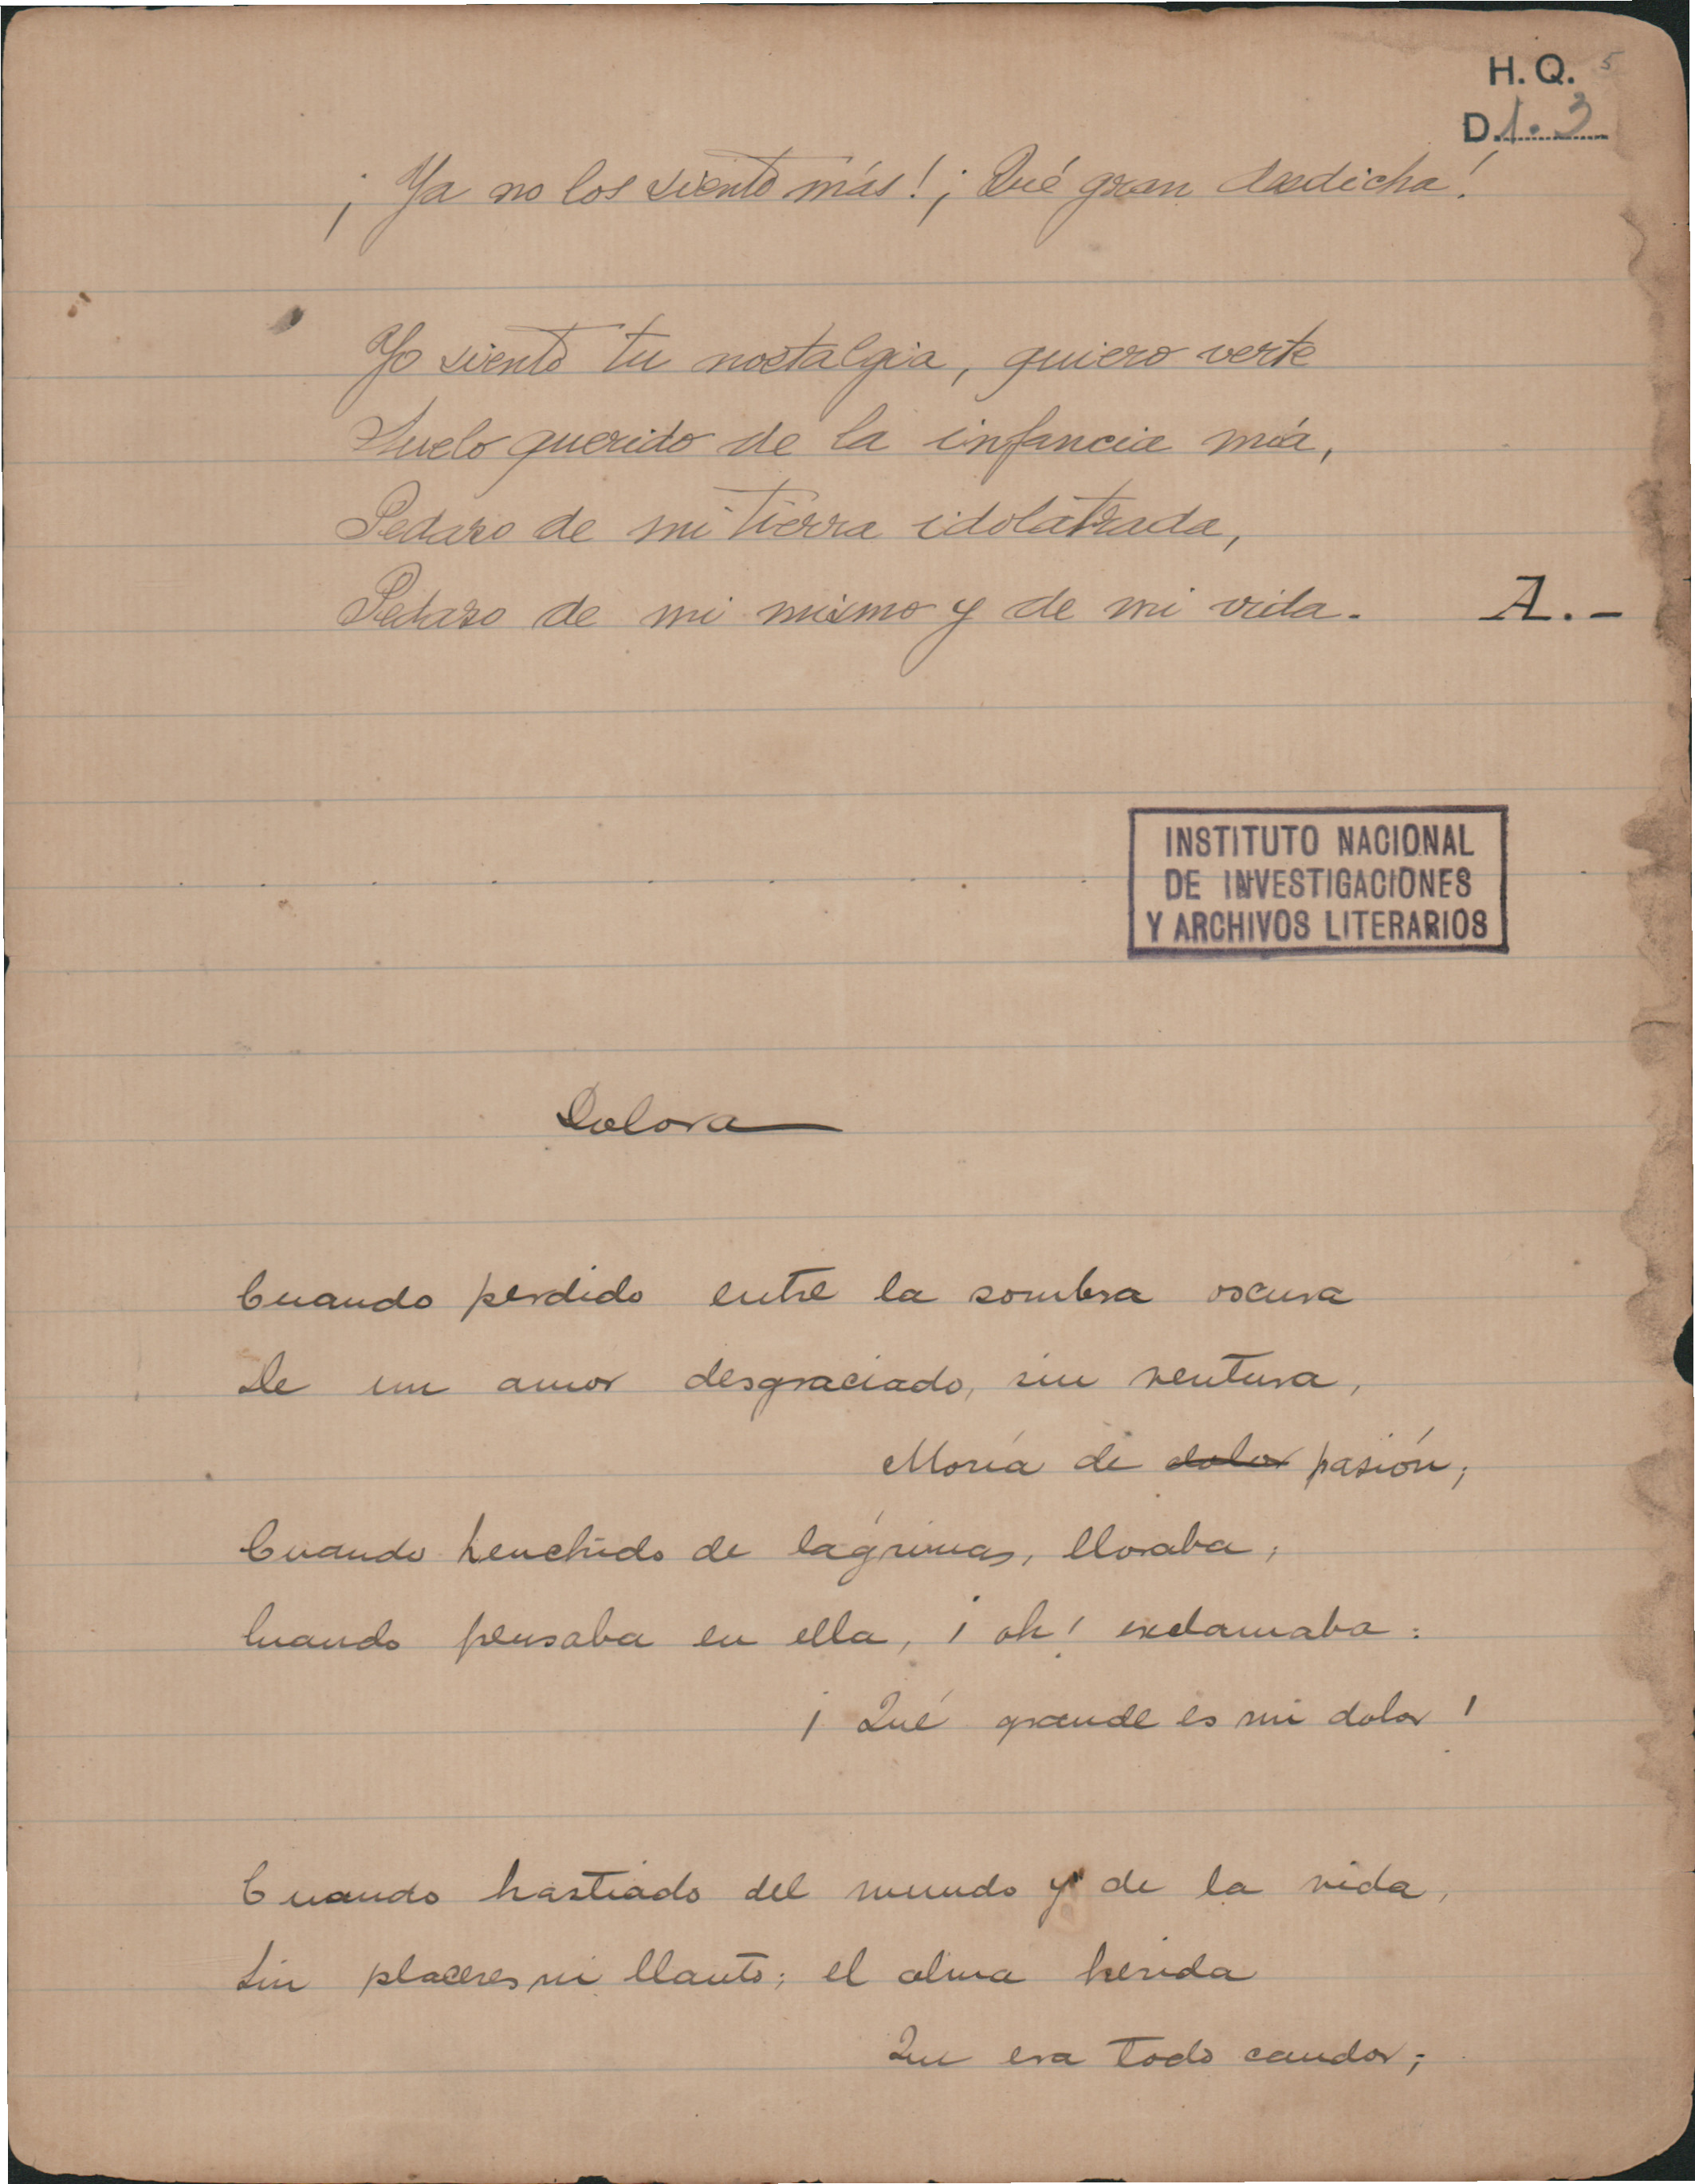 H. Q. 5
D. 1. 3
¡Ya no los siento más! ¡Qué gran desdicha!
Yo siento tu nostalgia, quiero verte
Suelo querido de la infancia mía,
Pedazo de mi tierra idolatrada,
Pedazo de mi mismo y de mi vida.
A.-
INSTITUTO NACIONAL
DE INVESTIGACIONES
Y ARCHIVOS LITERARIOS
Dolora
Cuando perdido entre la sombra oscura
De un amor desgraciado, sin ventura,
Moría de dolor pasión;
Cuando henchido de lágrimas, lloraba;
Cuando pensaba en ella, ¡oh! exclamaba:
¡Qué grande es mi dolor!
Cuando hastiado del mundo y de la vida,
Sin placeres ni llanto; el alma herida
Que era todo candor;